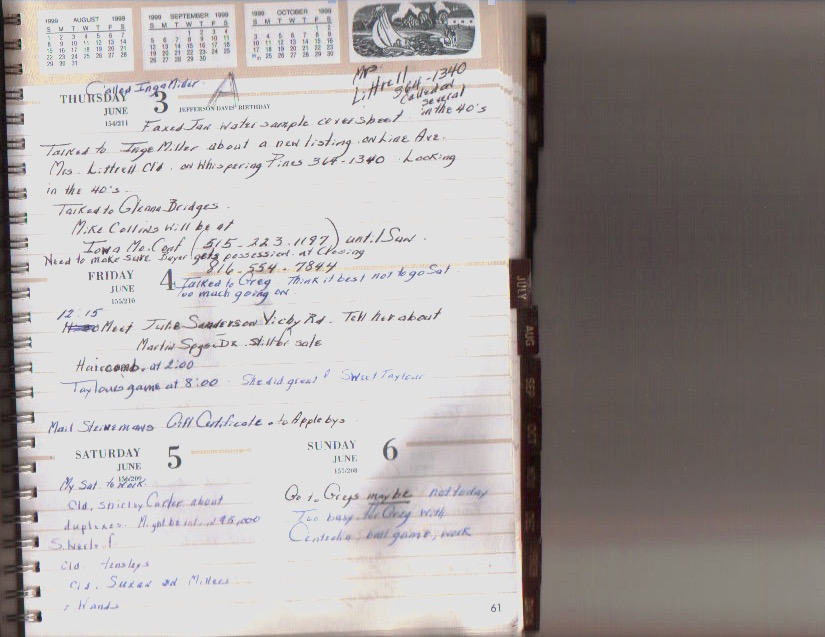 1999 AUGUST 1999
S M T W T F S
1 2 3 4 5 6 7
8 9 10 11 12 13 14
15 16 17 18 19 20 21
22 23 24 25 26 27 28
29 30 31
1999 SEPTEMBER 1999
S M T W T F S
1 2 3 4
5 6 7 8 9 10 11
12 13 14 15 16 17 18
19 20 21 22 23 24 25
26 27 28 29 30
1999 OCTOBER 1999
S M T W T F S
1 2
3 4 5 6 7 8 9
10 11 12 13 14 15 16
17 18 19 20 21 22 23
24/31 25 26 27 28 29 30
Called Inga Miller
A
Mrs.
Littrell
364-1340
Called on
several
in the 40's
THURSDAY 3
JUNE
154/211
JEFFERSON DAVIS' BIRTHDAY
Faxed Jan water sample cover sheet
Talked to Inge Miller about a new listing on Line Ave.
Mrs. Littrell Cld. on Whispering Pines 364-1340 Looking
in the 40's
Talked to Glenna Bridges
Mike Collins will be at
Iowa Mo. Conf (515-223-1197) until Sun.
Need to make sure Buyer gets possession at Closing
816-554-7844
FRIDAY 4
JUNE
155/210
Talked to Greg Think it best not to go Sat
too much going on
12:15
Meet Julie Sanderson Vichy Rd. Tell her about
Martin Dr. still for sale
Haircomb at 2:00
Taylour's game at 8:00 She did great! Sweet Taylour
Mail Steinemans Gift Certificate to Applebys
SATURDAY 5
JUNE
156/209
My Sat. to work
Cld. Shirley Carter about
duplexes. Might be int. 95,000
Cld. Tensleys
Cld. Suzan Millers
SUNDAY 6
JUNE
157/208
Go to Gregs maybe not today
Too busy for Greg with
Centralia, ball game, work
61
JULY
AUG
SEP
OCT
NOV
DEC